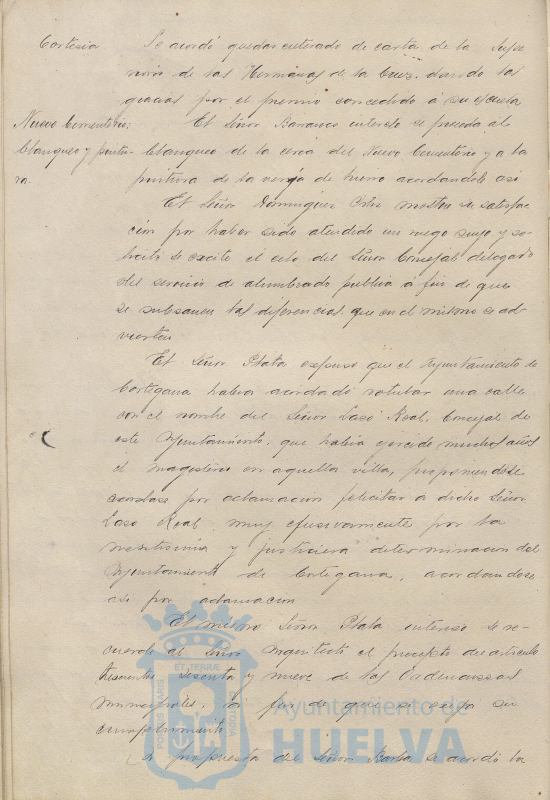 Cortesia
Se acordó quedar enterado de carta de la Supe
riora de las Hermanas de la Cruz, dando las
gracias por el premio concedido á su escuela
Nuevo Cementerio:
Blanqueo y pintu-
ra.
El Señor Barranco intereso se proceda al
blanqueo de la cerca del Nuevo Cementerio y a la
pintura de la verja de hierro acordandole asi
El Señor Dominguez Ortiz mostro su satisfac
cion por haber sido atendido un ruego suyo y so-
licito se excite el celo del Señor Concejal delegado
del servicio de alumbrado publico á fin de que
se subsanen las diferencias que en el mismo se ad-
vierten
El Señor Plata expuso que el Ayuntamiento de
Cortegana habia acordado rotular una calle
con el nombre del Señor Laso Real, Concejal de
este Ayuntamiento, que habia ejercido muchos años
el magisterio en aquella villa, proponiendose
acordase por aclamacion felicitar á dicho Señor
Laso Real muy efusivamente por la
meritisima y justiciera determinacion del
Ayuntamiento de Cortegana, acordandose
asi por aclamacion
El mismo Señor Plata intereso se re-
cuerde al Señor Arquitecto el precepto del articulo
trescientos sesenta y nueve de las Ordenanzas
municipales, á fin de que se exija su
cumplimiento
A propuesta del Señor Barba se acordó la
ET TERRÆ
PORTUS MARIS
CUSTODIA
Ayuntamiento de
HUELVA